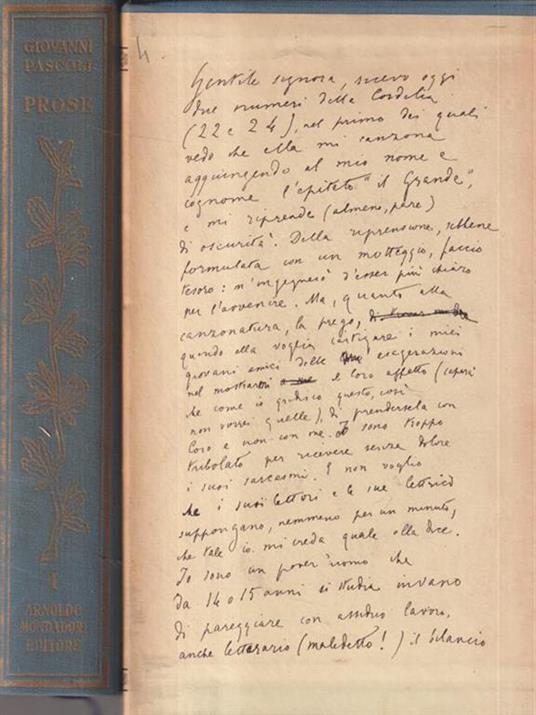 GIOVANNI
PASCOLI
PROSE
I
ARNOLDO
MONDADORI
EDITORE
4
Gentile signora, ricevo oggi
due numeri della Cordelia
(22 e 24), nel primo dei quali
vedo che ella mi canzona
aggiungendo al mio nome e
cognome l'epiteto "il Grande",
e mi riprende (almeno, pare)
di oscurità. Della riprensione, sebbene
formulata con un motteggio, faccio
tesoro: m'ingegnerò d'esser più chiaro
per l'avvenire. Ma, quanto alla
canzonatura, la prego,
quando ella voglia castigare i miei
giovani amici delle esagerazioni
nel mostrarmi il loro affetto (sapesse
che come io giudico questo, così
non vorrei quelle), di prendersela con
loro e non con me. Io sono troppo
tribolato per ricevere senza dolore
i suoi sarcasmi. E non voglio
che i suoi lettori e le sue lettrici
suppongano, nemmeno per un minuto,
che tale io mi creda quale ella dice.
Io sono un pover'uomo che
da 14 o 15 anni si studia invano
di pareggiare con assiduo lavoro,
anche letterario (maledetto!) il bilancio